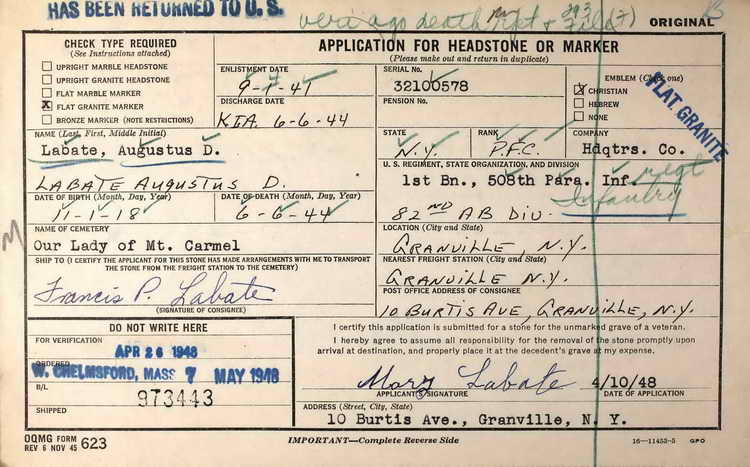 HAS BEEN RETURNED TO U. S.
ORIGINAL
CHECK TYPE REQUIRED
(See Instructions attached)
UPRIGHT MARBLE HEADSTONE
UPRIGHT GRANITE HEADSTONE
FLAT MARBLE MARKER
X FLAT GRANITE MARKER
BRONZE MARKER (NOTE RESTRICTIONS)
APPLICATION FOR HEADSTONE OR MARKER
(Please make out and return in duplicate)
ENLISTMENT DATE
9-7-41
DISCHARGE DATE
KIA. 6-6-44
SERIAL No.
32100578
PENSION No.
EMBLEM (Check one)
X CHRISTIAN
HEBREW
NONE
FLAT. GRANITE
NAME (Last, First, Middle Initial)
Labate, Augustus D.
LABATE AUGUSTUS D.
STATE
N.Y.
RANK
P.F.C.
COMPANY
Hdqtrs. Co.
U. S. REGIMENT, STATE ORGANIZATION, AND DIVISION
1st Bn., 508th Para. Inf. regt
Infantry
82ND AB DIV.
DATE OF BIRTH (Month, Day, Year)
11-1-18
DATE OF DEATH (Month, Day, Year)
6-6-44
NAME OF CEMETERY
Our Lady of Mt. Carmel
LOCATION (City and State)
GRANVILLE, N.Y.
SHIP TO (I CERTIFY THE APPLICANT FOR THIS STONE HAS MADE ARRANGEMENTS WITH ME TO TRANSPORT
THE STONE FROM THE FREIGHT STATION TO THE CEMETERY)
Francis P. Labate
(SIGNATURE OF CONSIGNEE)
NEAREST FREIGHT STATION (City and State)
GRANVILLE N.Y.
POST OFFICE ADDRESS OF CONSIGNEE
10 BURTIS AVE, GRANVILLE, N.Y.
DO NOT WRITE HERE
FOR VERIFICATION
APR 26 1948
ORDERED
W. CHELMSFORD, MASS 7 MAY 1948
B/L
973443
SHIPPED
I certify this application is submitted for a stone for the unmarked grave of a veteran.
I hereby agree to assume all responsibility for the removal of the stone promptly upon
arrival at destination, and properly place it at the decedent's grave at my expense.
Mary Labate 4/10/48
APPLICANT(S) SIGNATURE DATE OF APPLICATION
ADDRESS (Street, City, State)
10 Burtis Ave., Granville, N. Y.
OQMG FORM 623
REV 6 NOV 45
IMPORTANT—Complete Reverse Side
16—11453-5 GPO